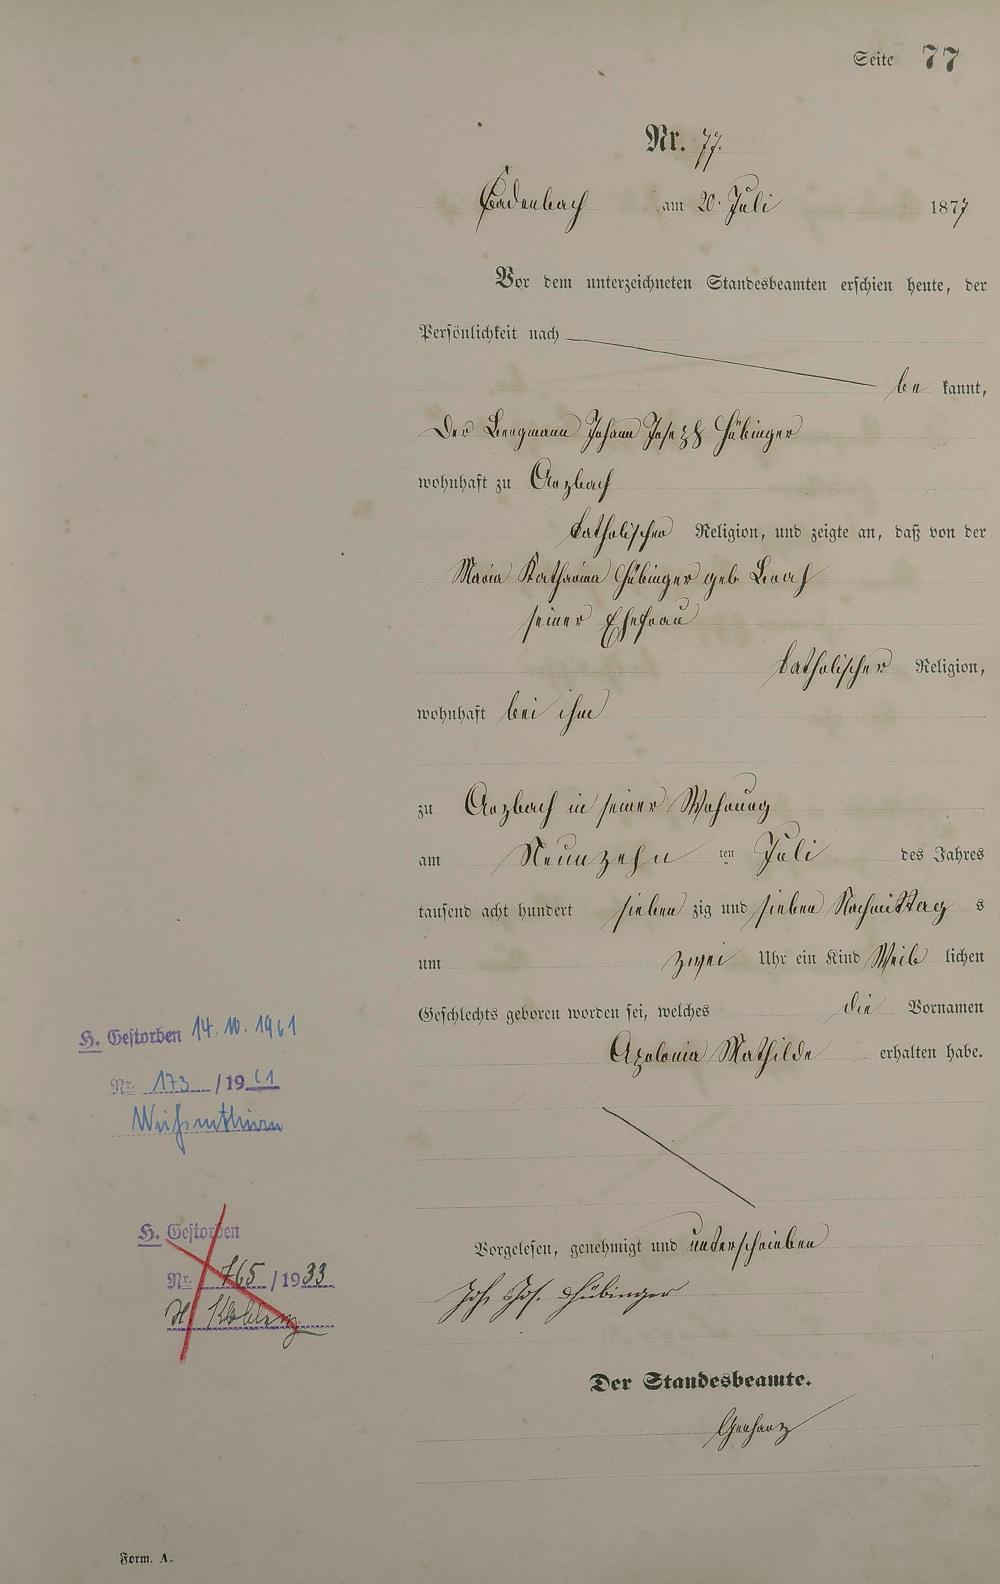 Seite 77
Nr. 77.
Cadenbach am 20. Juli 1877
Vor dem unterzeichneten Standesbeamten erschien heute, der
Persönlichkeit nach
be kannt,
der Bergmann Johann Joseph Hübinger
wohnhaft zu Arzbach
katholischer Religion, und zeigte an, daß von der
Maria Katharina Hübinger geb
seiner Ehefrau
katholischer Religion,
wohnhaft bei ihm
zu Arzbach in seiner Wohnung
am Neunzehn ten Juli des Jahres
tausend acht hundert sieben zig und sieben Nachmittag s
um zwei Uhr ein Kind Weib lichen
Geschlechts geboren worden sei, welches die Vornamen
Apolonia Mathilde erhalten habe.
Vorgelesen, genehmigt und unterschrieben
Joh. Jos. Hübinger
Der Standesbeamte.
Gerharz
H. Gestorben 14.10.1961
Nr. 173 / 1961
Weißenthurm
H. Gestorben
Nr. 765 / 1933
Koblenz
Form. A.